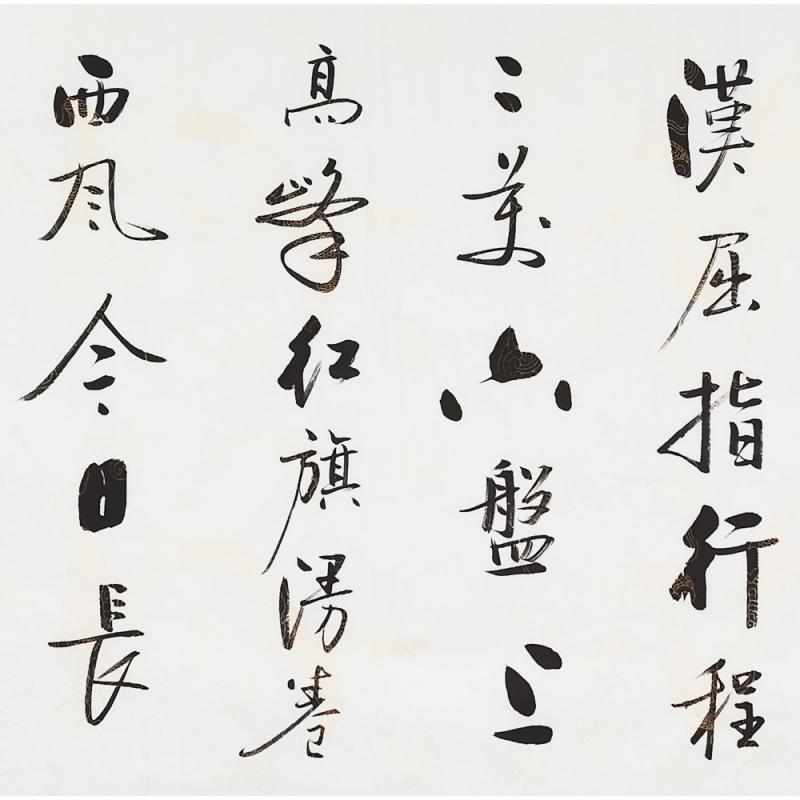 漢屈指行程
二萬六盤上
高峰紅旗漫卷
西風今日長